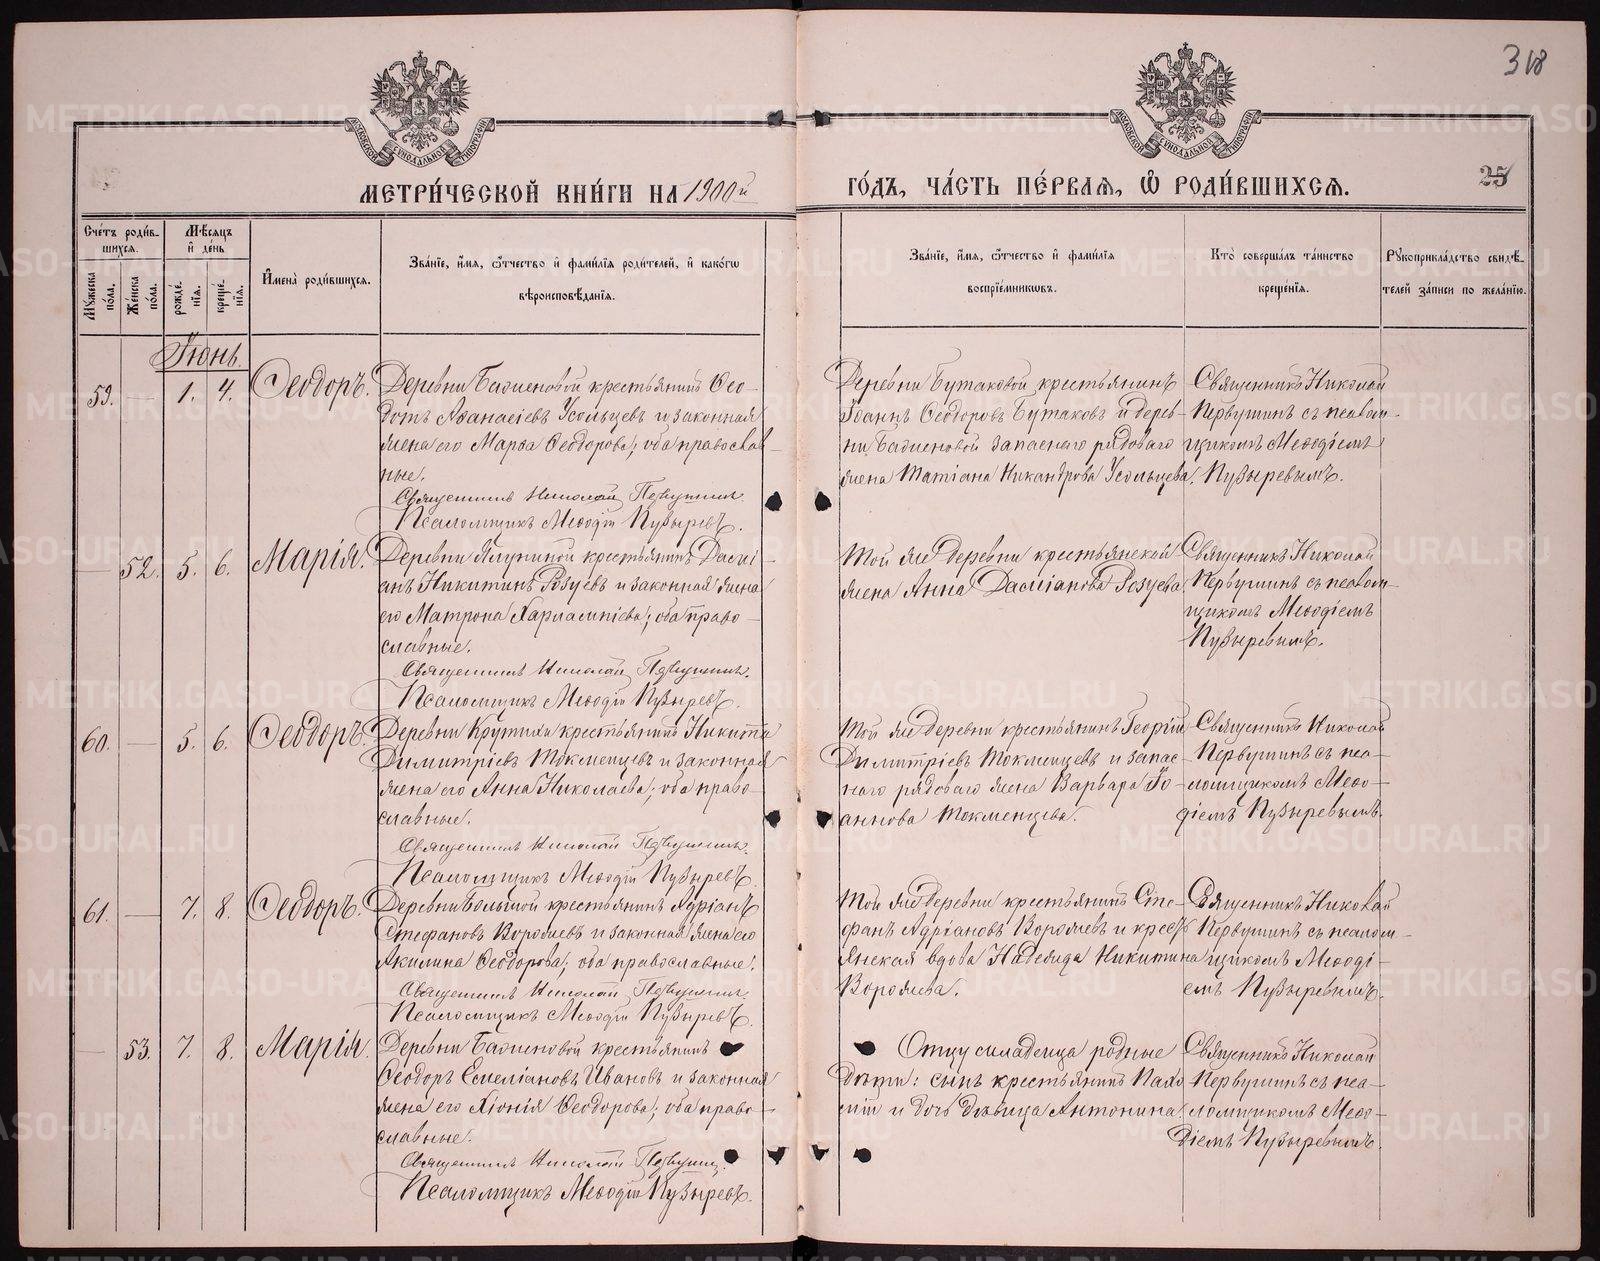 318
25
МЕТРИ́ЧЕСКОЙ КНИ́ГИ НА 1900й
ГО́ДЪ, ЧА́СТЬ ПЕ́РВАѦ, Ѡ҆ РОДИ́ВШИХСѦ.
МОСКОВСКОЙ СѴНОДАЛЬНОЙ ТИПОГРАФІИ
МОСКОВСКОЙ СѴНОДАЛЬНОЙ ТИПОГРАФІИ
Сче́тъ роди́в-
шихсѧ.
Мꙋ́жеска по́ла.
Же́нска по́ла.
Мѣ́сѧцъ и҆ де́нь
рожде́-
нїѧ.
креще́-
нїѧ.
И҆мена̀ роди́вшихсѧ.
Зва́нїе, и҆́мѧ, ѻ҆́тчество и҆ фами́лїѧ роди́телей, и҆ како́гѡ
вѣроисповѣ́данїѧ.
Зва́нїе, и҆́мѧ, ѻ҆́тчество и҆ фами́лїѧ
воспрїе́мникѡвъ.
Кто̀ соверша́лъ та́инство
креще́нїѧ.
Рꙋкоприкла́дство свидѣ́-
телей за́писи по жела́нїю.
Іюнь.
59. — 1. 4. Ѳеодоръ.
Деревни Бадиеновой крестьянинъ Ѳео-
дотъ Аѳанасіевъ Усольцевъ и законная
жена его Марѳа Ѳеодорова; оба православ-
ные.
Священникъ Николай Первушинъ.
Псаломщикъ Меѳодій Пузыревъ.
Деревни Бутаковой крестьянинъ
Іоаннъ Ѳеодоровъ Бутаковъ и дерев-
ни Бадиеновой запаснаго рядоваго
жена Татіана Никандрова Усольцева.
Священникъ Николай
Первушинъ съ псалом-
щикомъ Меѳодіемъ
Пузыревымъ.
— 52. 5. 6. Марія.
Деревни Ялуниной крестьянинъ Дамі-
анъ Никитинъ Розуевъ и законная жена
его Матрона Харлампіева; оба право-
славные.
Священникъ Николай Первушинъ.
Псаломщикъ Меѳодій Пузыревъ.
Той же деревни крестьянской
жена Анна Даміанова Розуева.
Священникъ Николай
Первушинъ съ псалом-
щикомъ Меѳодіемъ
Пузыревымъ.
60. — 5. 6. Ѳеодоръ.
Деревни Крутихи крестьянинъ Никита
Димитріевъ Токменцевъ и законная
жена его Анна Николаева; оба право-
славные.
Священникъ Николай Первушинъ.
Псаломщикъ Меѳодій Пузыревъ.
Той же деревни крестьянинъ Георгій
Димитріевъ Токменцевъ и запас-
наго рядоваго жена Варвара Іо-
аннова Токменцева.
Священникъ Николай
Первушинъ съ пса-
ломщикомъ Меѳо-
діемъ Пузыревымъ.
61. — 7. 8. Ѳеодоръ.
Деревни Большой крестьянинъ Адріанъ
Стефановъ Ворожевъ и законная жена его
Акилина Ѳеодорова; оба православные.
Священникъ Николай Первушинъ.
Псаломщикъ Меѳодій Пузыревъ.
Той же деревни крестьянинъ Сте-
фанъ Адріановъ Ворожевъ и кресть-
янская вдова Надежда Никитина
Ворожева.
Священникъ Николай
Первушинъ съ псалом-
щикомъ Меѳоді-
емъ Пузыревымъ.
— 53. 7. 8. Марія.
Деревни Бадиеновой крестьянинъ
Ѳеодоръ Емеліановъ Ивановъ и законная
жена его Хіонія Ѳеодорова; оба право-
славные.
Священникъ Николай Первушин.
Псаломщикъ Меѳодій Пузыревъ.
Отцу младенца родные
дѣти: сынъ крестьянинъ Пахо-
мій и дочь дѣвица Антонина.
Священникъ Николай
Первушинъ съ пса-
ломщикомъ Меѳо-
діемъ Пузыревымъ.
METRIKI.GASO-URAL.RU